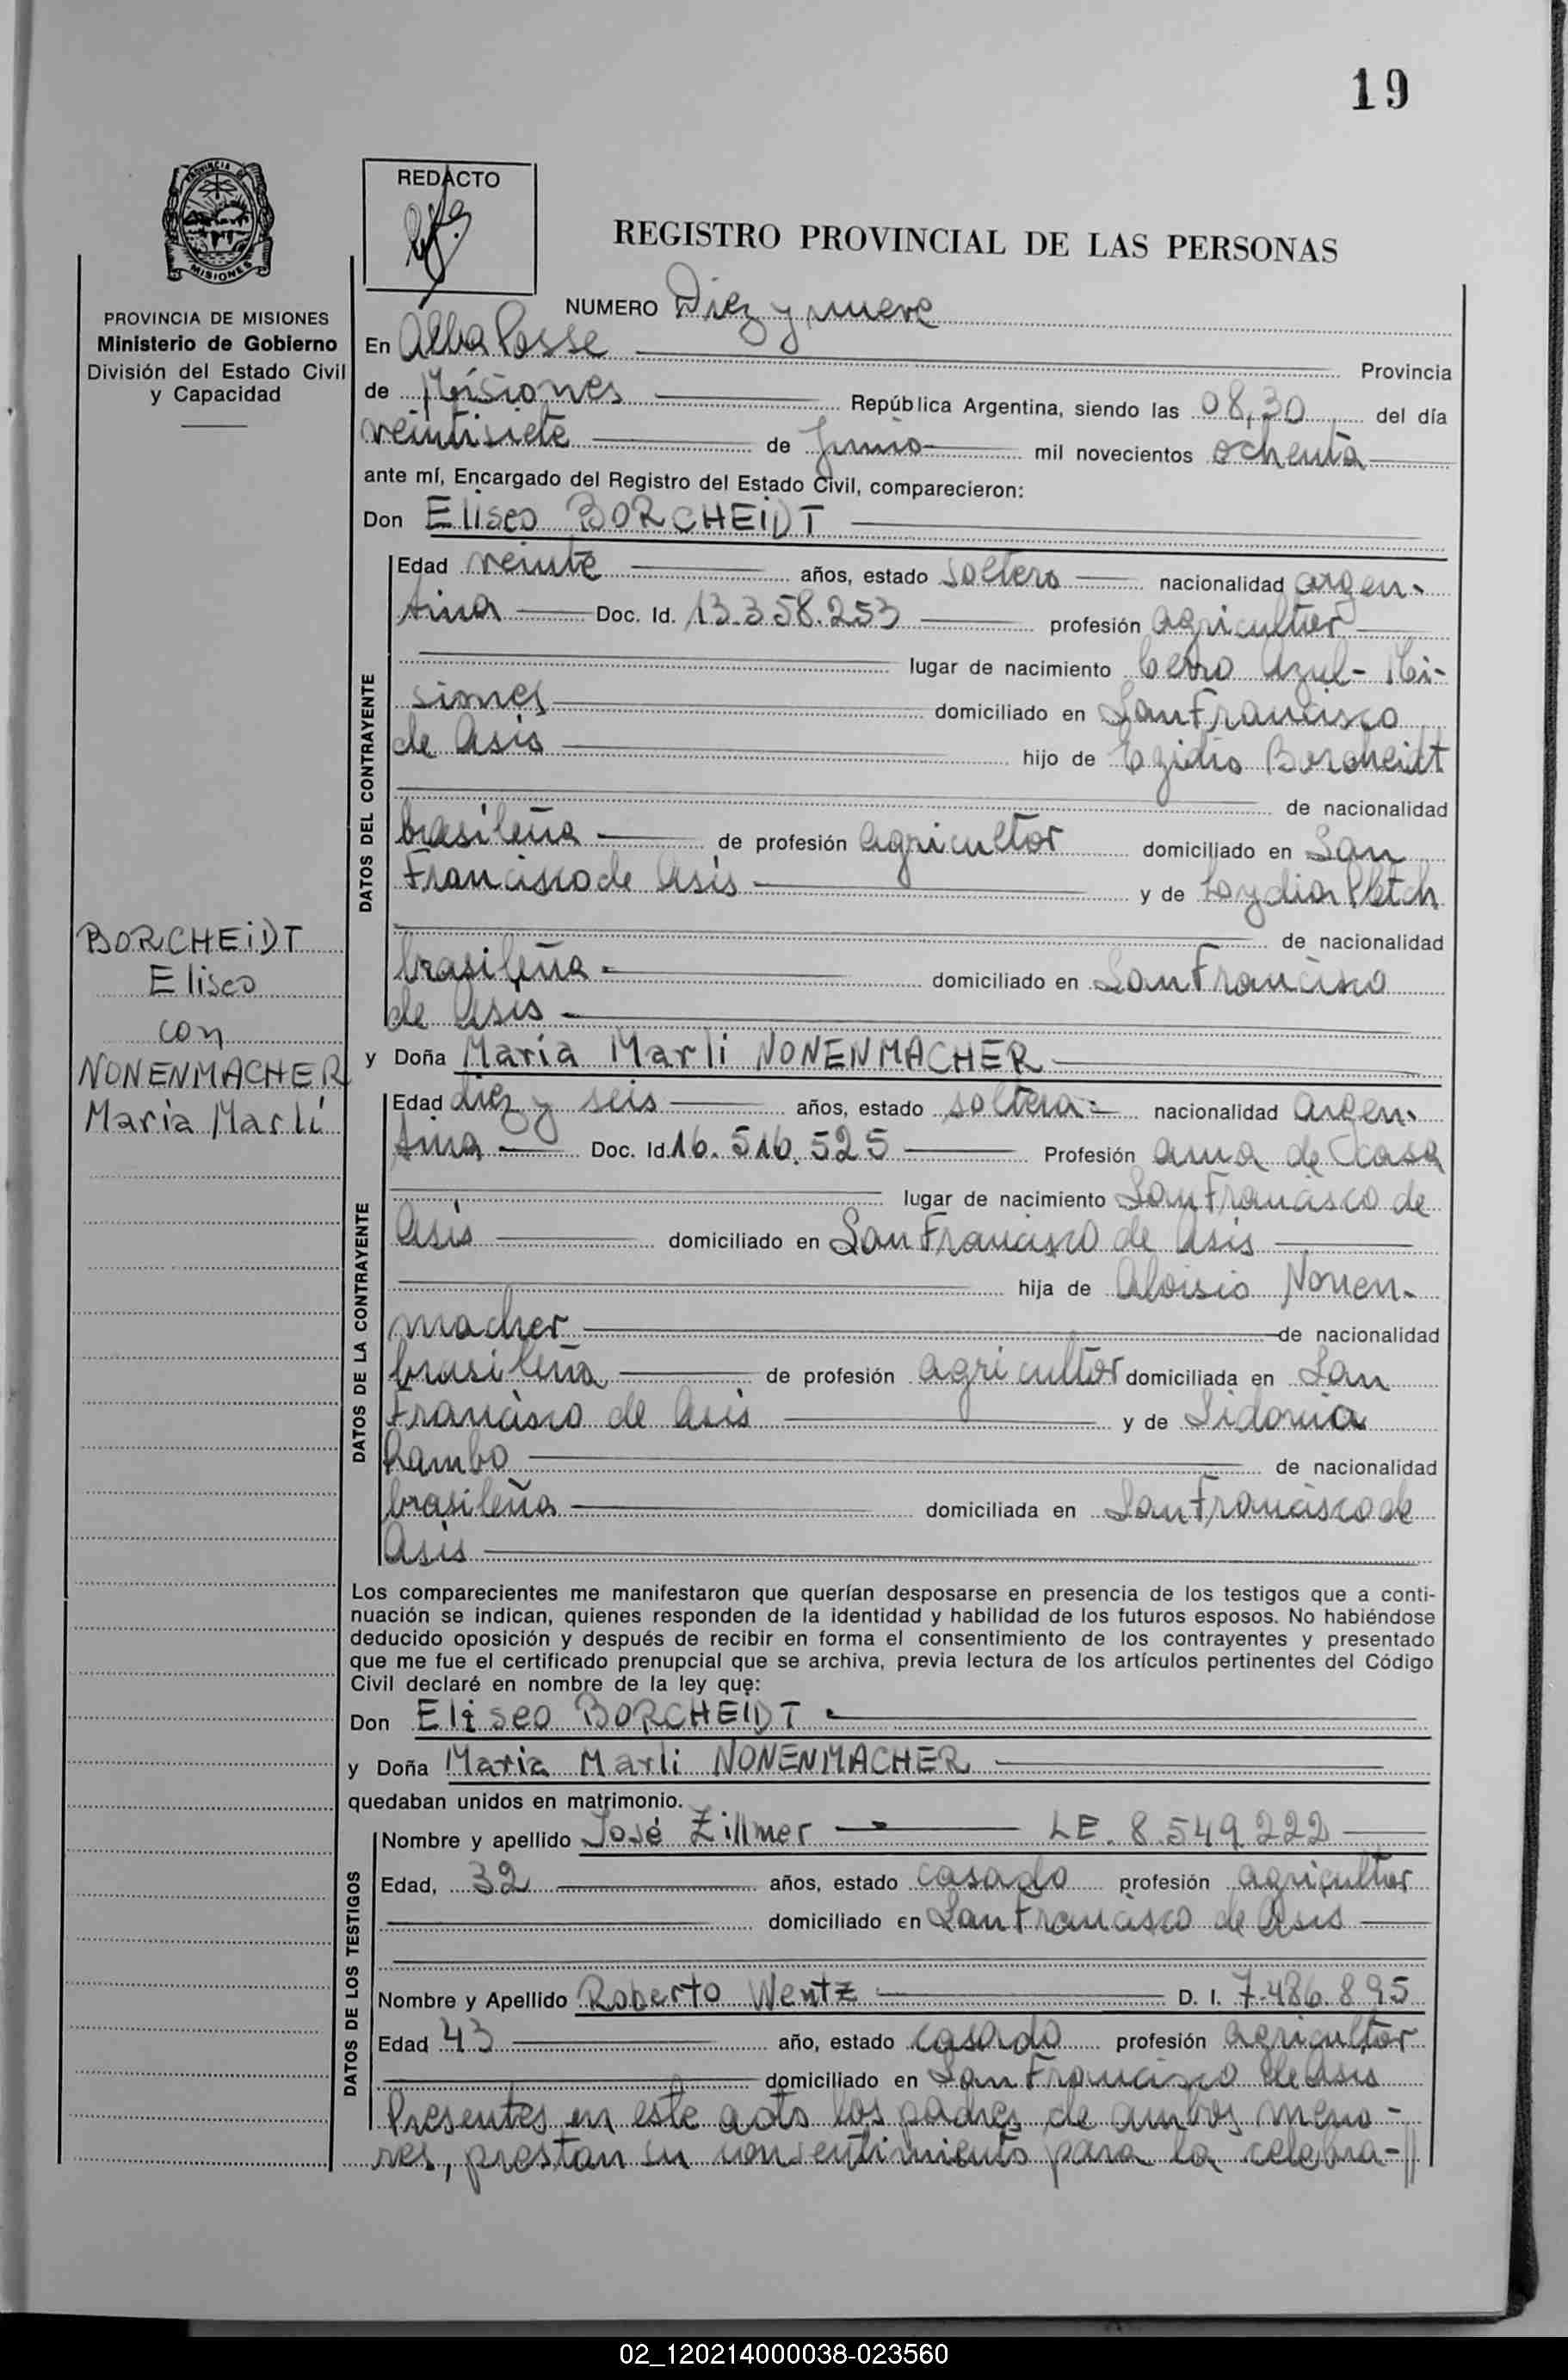 19
PROVINCIA DE
MISIONES
REDACTO
REGISTRO PROVINCIAL DE LAS PERSONAS
PROVINCIA DE MISIONES
Ministerio de Gobierno
División del Estado Civil
y Capacidad
NUMERO Diez y nueve
En Alba Posse Provincia
de Misiones República Argentina, siendo las 08,30 del día
veintisiete de Junio mil novecientos ochenta
ante mí, Encargado del Registro del Estado Civil, comparecieron:
Don Eliseo BORCHEIDT
DATOS DEL CONTRAYENTE
Edad veinte años, estado soltero nacionalidad argen-
tina Doc. Id. 13.358.253 profesión agricultor
lugar de nacimiento Cerro Azul - Mi-
siones domiciliado en San Francisco
de Asis hijo de Egidio Borcheidt
de nacionalidad
brasileña de profesión agricultor domiciliado en San
Francisco de Asis y de Loydia Pletch
de nacionalidad
brasileña domiciliado en San Francisco
de Asis
BORCHEIDT
Eliseo
con
NONENMACHER
Maria Marlí
y Doña Maria Marli NONENMACHER
DATOS DE LA CONTRAYENTE
Edad diez y seis años, estado soltera nacionalidad argen-
tina Doc. Id. 16.516.525 Profesión ama de casa
lugar de nacimiento San Francisco de
Asis domiciliado en San Francisco de Asis
hija de Aloisio Nonen-
macher de nacionalidad
brasileña de profesión agricultor domiciliada en San
Francisco de Asis y de Sidonia
Rambo de nacionalidad
brasileña domiciliada en San Francisco de
Asis
Los comparecientes me manifestaron que querían desposarse en presencia de los testigos que a conti-
nuación se indican, quienes responden de la identidad y habilidad de los futuros esposos. No habiéndose
deducido oposición y después de recibir en forma el consentimiento de los contrayentes y presentado
que me fue el certificado prenupcial que se archiva, previa lectura de los artículos pertinentes del Código
Civil declaré en nombre de la ley que:
Don Eliseo BORCHEIDT
y Doña Maria Marli NONENMACHER
quedaban unidos en matrimonio.
DATOS DE LOS TESTIGOS
Nombre y apellido José Zillmer LE. 8.549.222
Edad, 32 años, estado casado profesión agricultor
domiciliado en San Francisco de Asis
Nombre y Apellido Roberto Wentz D. I. 7.486.895
Edad 43 año, estado casado profesión agricultor
domiciliado en San Francisco de Asis
Presentes en este acto los padres de ambos meno-
res, prestan su consentimiento para la celebra-//
02_120214000038-023560